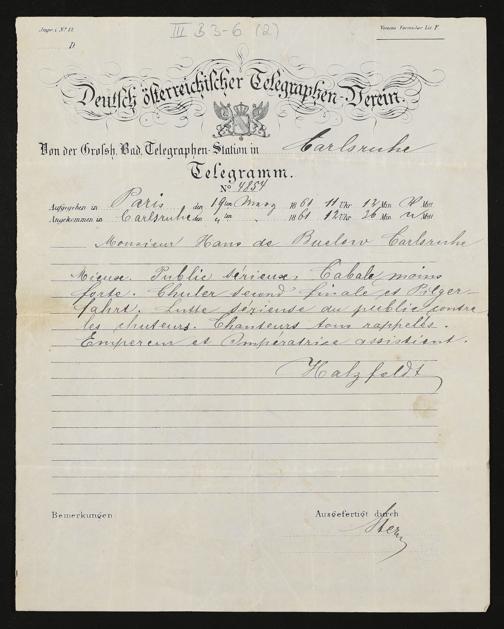 Impr. i. Nº 12.
III B 3-6 (2)
Vereins Formular Lit. F.
D
Deutsch österreichischer Telegraphen-Verein.
Von der Grofsh. Bad. Telegraphen-Station in Carlsruhe
Telegramm.
Nº 4854
Aufgegeben in Paris den 19ten März 1861 11 Uhr 12 Min
Angekommen in Carlsruhe den "ten " 1861 12 Uhr 26 Min
Monsieur Hans de Buelow Carlsruhe
Mieux. Public sérieux. Cabale moins
forte. Chuter second finale et Pilger-
fahrt. Lutte sérieuse du public contre
les chuteurs. Chanteurs tous rappelés.
Empereur et Impératrice assistient.
Hatzfeldt
Bemerkungen
Ausgefertigt durch
Stern